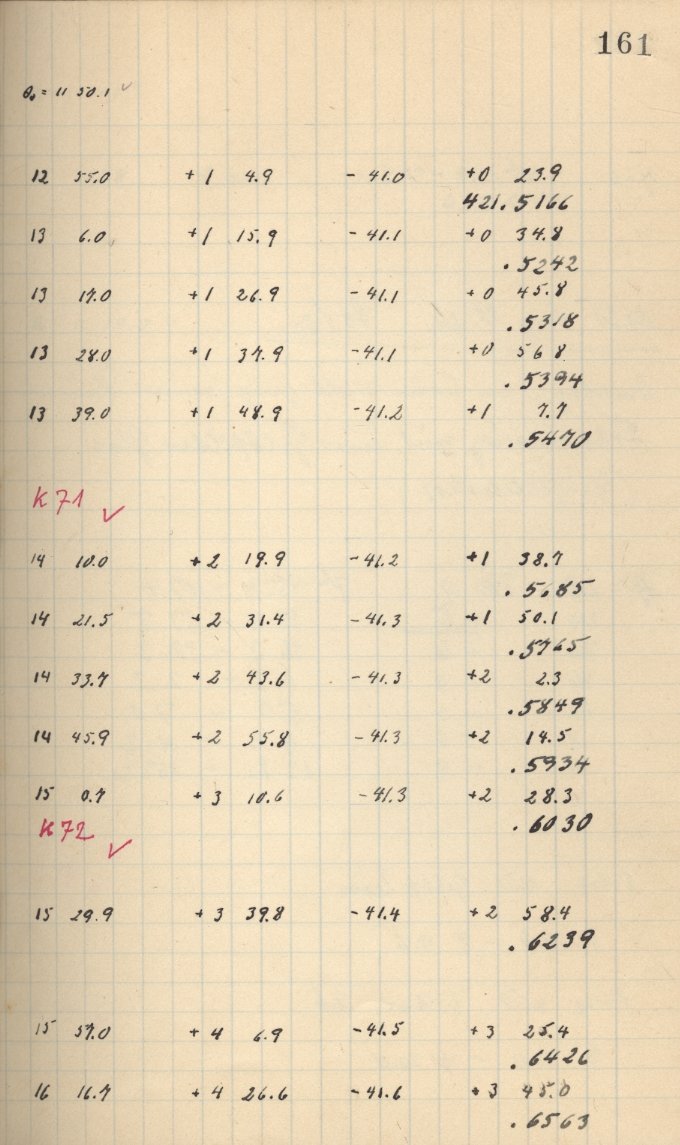 161
θ₀ = 11 50.1 ✓
12 55.0 +1 4.9 -41.0 +0 23.9
421.5166
13 6.0 +1 15.9 -41.1 +0 34.8
.5242
13 17.0 +1 26.9 -41.1 +0 45.8
.5318
13 28.0 +1 37.9 -41.1 +0 56.8
.5394
13 39.0 +1 48.9 -41.2 +1 7.7
.5470
K 71 ✓
14 10.0 +2 19.9 -41.2 +1 38.7
.5685
14 21.5 +2 31.4 -41.3 +1 50.1
.5765
14 33.7 +2 43.6 -41.3 +2 2.3
.5849
14 45.9 +2 55.8 -41.3 +2 14.5
.5934
15 0.7 +3 10.6 -41.3 +2 28.3
.6030
K 72 ✓
15 29.9 +3 39.8 -41.4 +2 58.4
.6239
15 57.0 +4 6.9 -41.5 +3 25.4
.6426
16 16.7 +4 26.6 -41.6 +3 45.0
.6563